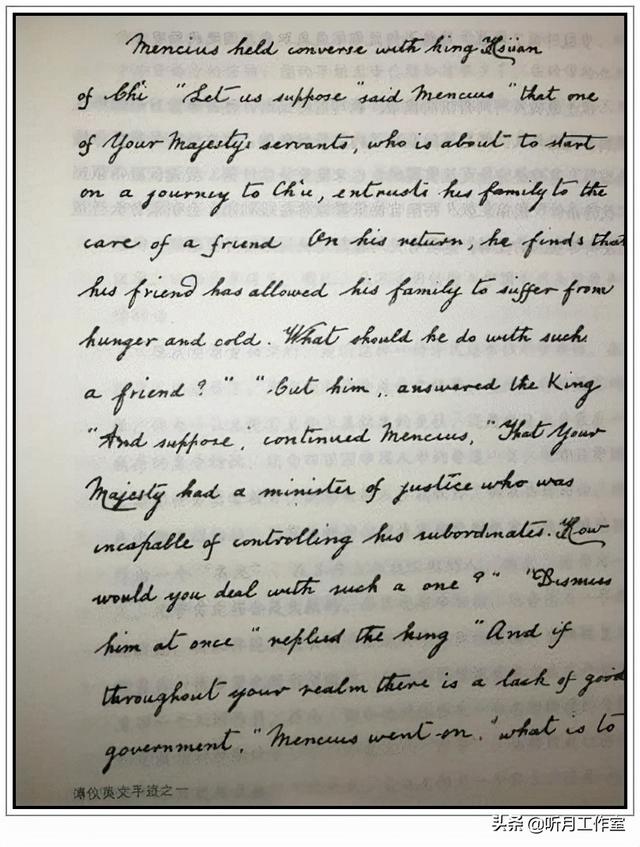 Mencius held converse with king Hsüan
of Ch'i "Let us suppose" said Mencius "that one
of Your Majestys servants, who is about to start
on a journey to Ch'u, entrusts his family to the
care of a friend On his return, he finds that
his friend has allowed his family to suffer from
hunger and cold. What should he do with such
a friend?" "Cut him," answered the King
"And suppose", continued Mencius, "That Your
Majesty had a minister of justice who was
incapable of controlling his subordinates. How
would you deal with such a one?" "Dismiss
him at once" replied the king "And if
throughout your realm there is a lack of good
government," Mencius went on, "what is to
溥仪英文手迹之一
头条 @听月工作室